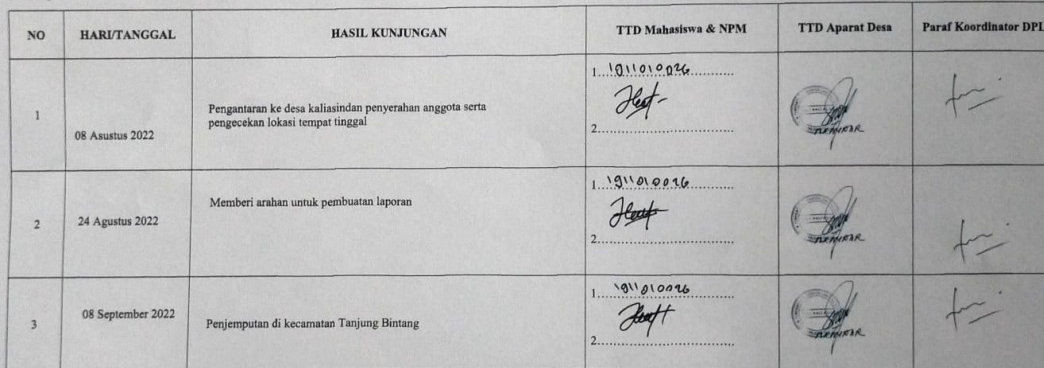 NO HARI/TANGGAL HASIL KUNJUNGAN TTD Mahasiswa & NPM TTD Aparat Desa Paraf Koordinator DPL
1
08 Asustus 2022
Pengantaran ke desa kaliasindan penyerahan anggota serta
pengecekan lokasi tempat tinggal
1. 1911010026
2.
2
24 Agustus 2022
Memberi arahan untuk pembuatan laporan
1. 1911010026
2.
3
08 September 2022
Penjemputan di kecamatan Tanjung Bintang
1. 1911010026
2.